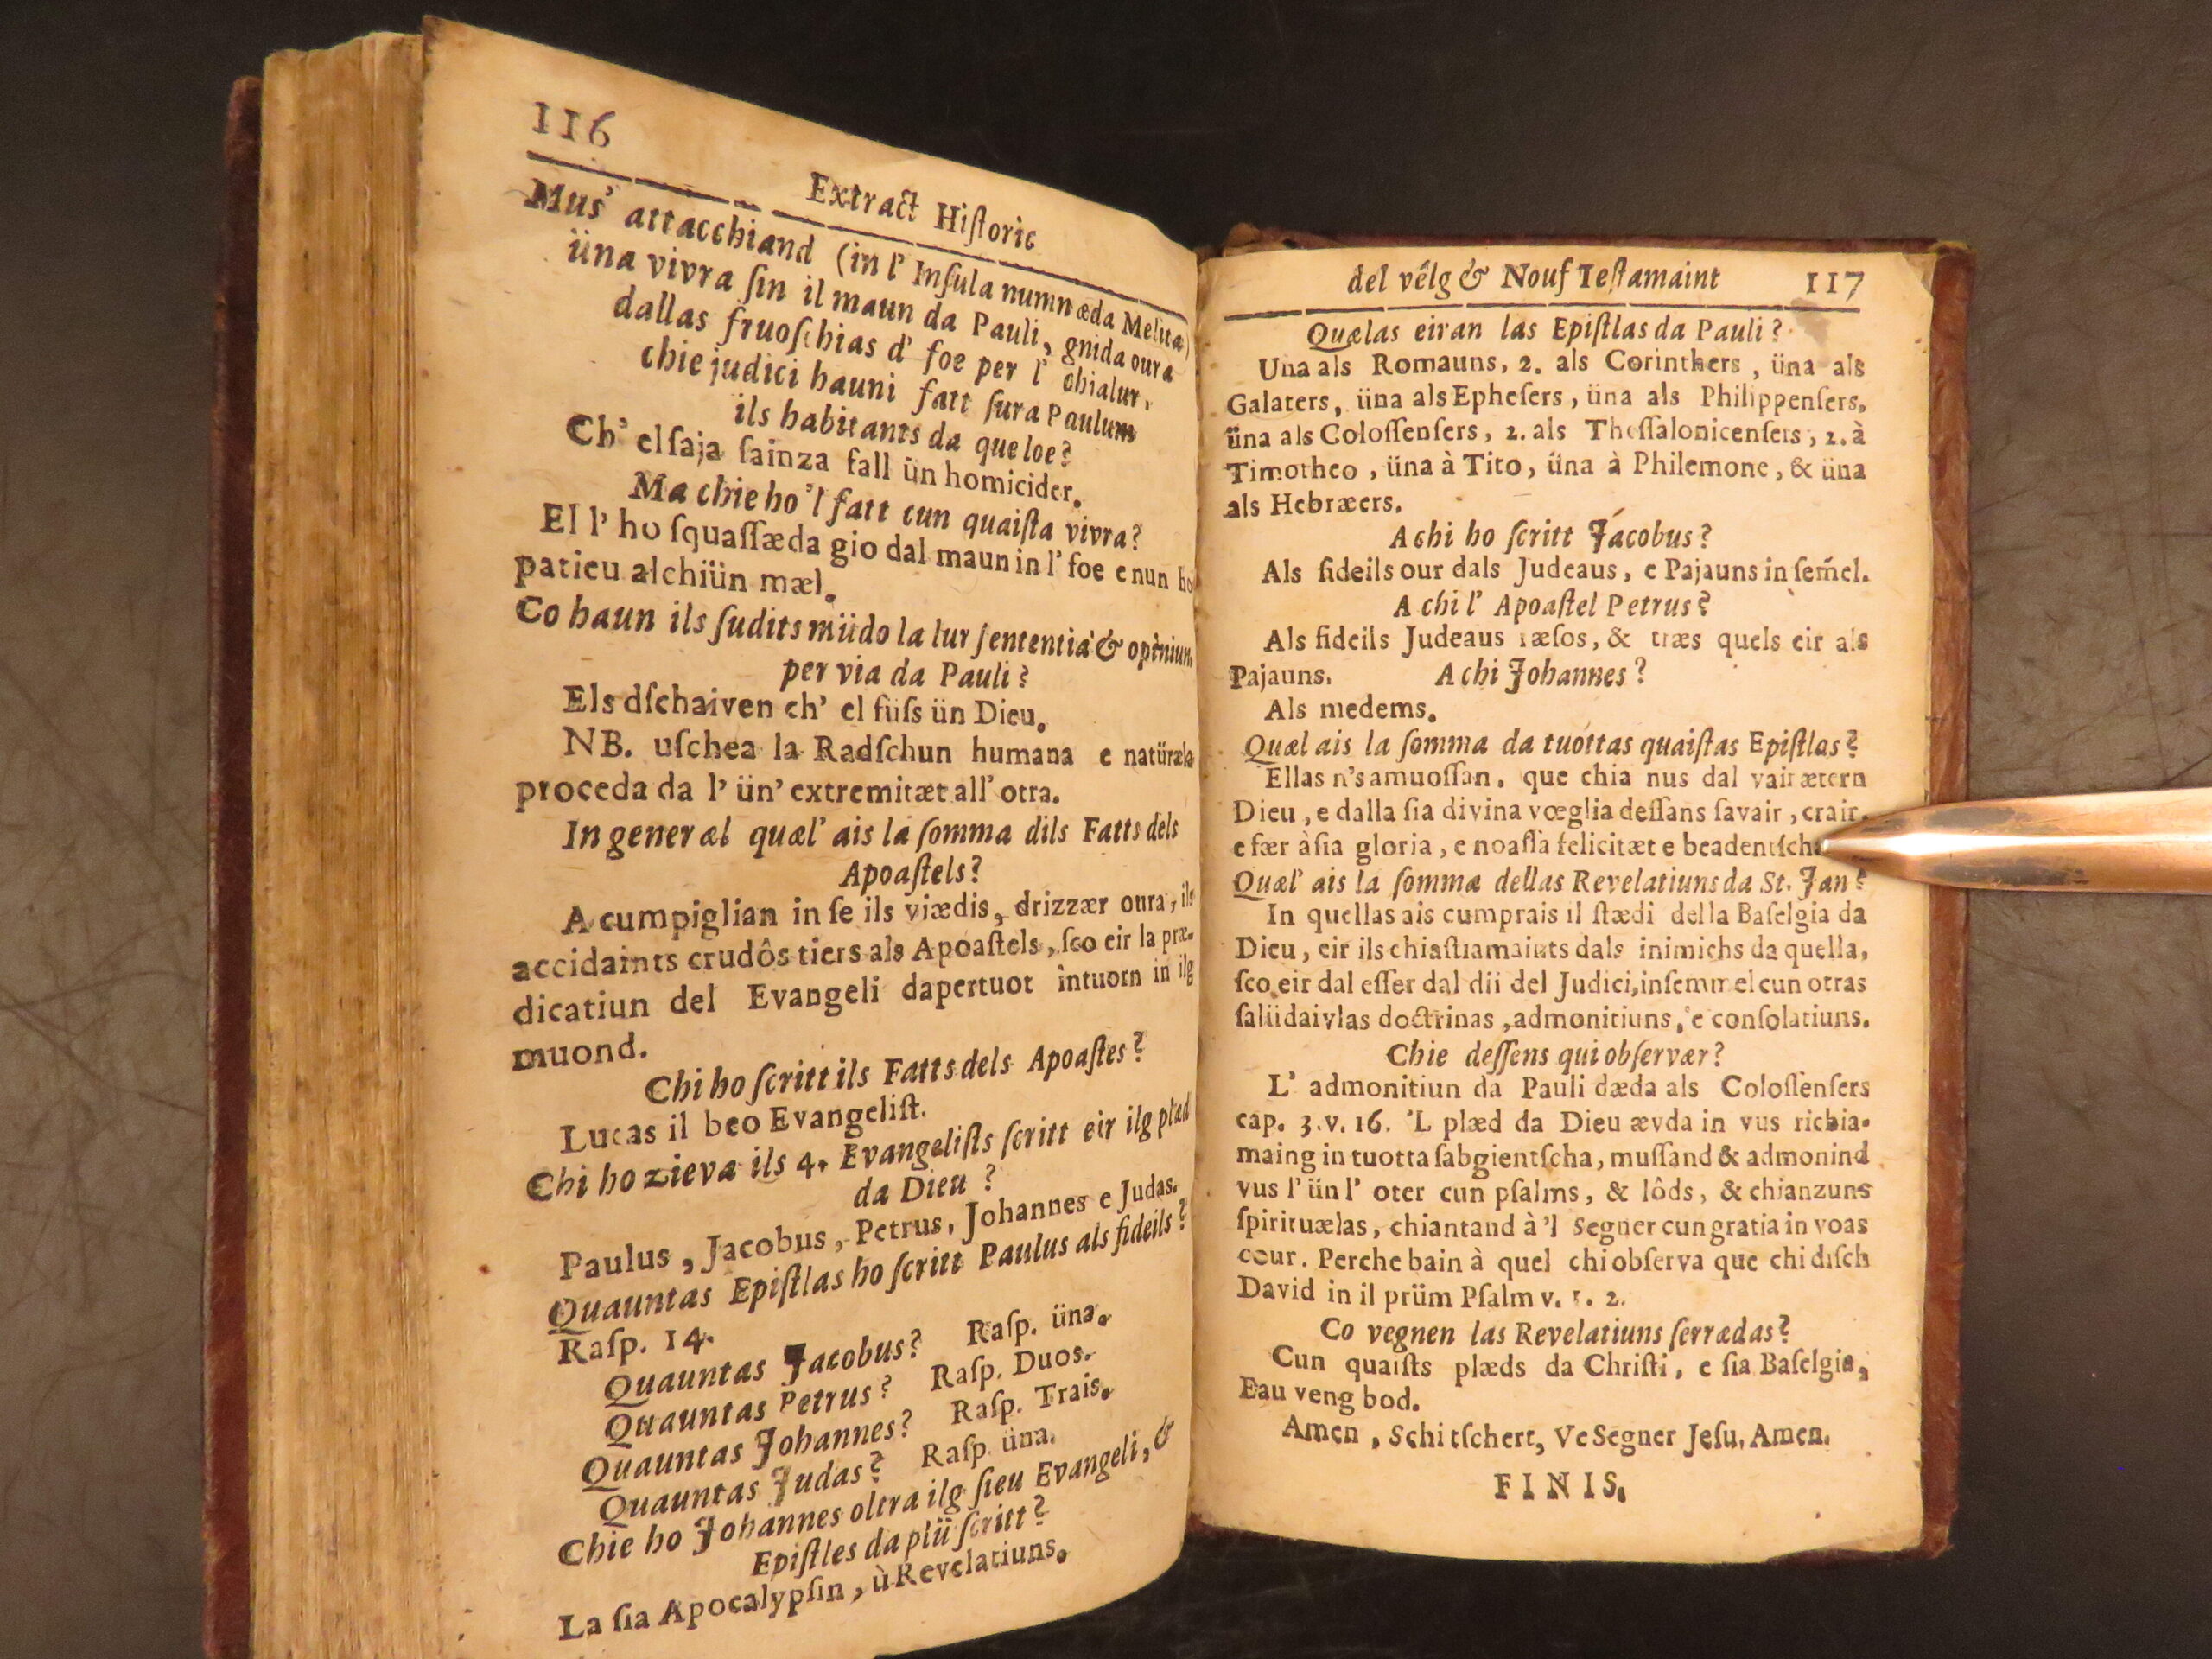 116
Extract Hiſtoric
Mus' attacchiand (in l' Inſula numnæda Melita)
üna vivra ſin il maun da Pauli, gnida oura
dallas fruoſchias d' foe per l' chialur,
chie judici hauni fatt ſura Paulum
ils habitants da que loe?
Ch' el ſaja ſainza fall ün homicider.
Ma chie ho 'l fatt cun quaiſta vivra?
El l' ho ſquaſſæda gio dal maun in l' foe e nun ho
patieu alchiün mæl.
Co haun ils ſudits müdo la lur ſententia & opiniun
per via da Pauli?
Els dſchaiven ch' el füſs ün Dieu.
NB. uſchea la Radſchun humana e natüræla
proceda da l' ün' extremitæt all' otra.
In general quæl' ais la ſomma dils Fatts dels
Apoaſtels?
A cumpiglian in ſe ils viædis, drizzær oura, ils
accidaints crudôs tiers als Apoaſtels, ſco eir la præ-
dicatiun del Evangeli dapertuot intuorn in ilg
muond.
Chi ho ſcritt ils Fatts dels Apoaſtes?
Lucas il beo Evangeliſt.
Chi ho zieva ils 4. Evangeliſts ſcritt eir ilg plæd
da Dieu?
Paulus, Jacobus, Petrus, Johannes e Judas.
Quauntas Epiſtlas ho ſcritt Paulus als fideils?
Raſp. 14.
Quauntas Jacobus? Raſp. üna.
Quauntas Petrus? Raſp. Duos.
Quauntas Johannes? Raſp. Trais.
Quauntas Judas? Raſp. üna.
Chie ho Johannes oltra ilg ſieu Evangeli, &
Epiſtles da plü ſcritt?
La ſia Apocalypſin, ù Revelatiuns.
del vêlg & Nouf Teſtamaint 117
Quælas eiran las Epiſtlas da Pauli?
Una als Romauns, 2. als Corinthers, üna als
Galaters, üna als Epheſers, üna als Philippenſers,
üna als Coloſſenſers, 2. als Theſſalonicenſers, 2. à
Timotheo, üna à Tito, üna à Philemone, & üna
als Hebræers.
A chi ho ſcritt Jacobus?
Als fideils our dals Judeaus, e Pajauns in ſem̃el.
A chi l' Apoaſtel Petrus?
Als fideils Judeaus ſæſos, & træs quels eir als
Pajauns. A chi Johannes?
Als medems.
Quæl ais la ſomma da tuottas quaiſtas Epiſtlas?
Ellas n's amuoſſan, que chia nus dal vair ætern
Dieu, e dalla ſia divina vœglia deſſans ſavair, crair,
e fær à ſia gloria, e noaſſa felicitæt e
Quæl' ais la ſomma dellas Revelatiuns da St. Jan?
In quellas ais cumprais il ſtædi della Baſelgia da
Dieu, eir ils chiaſtiamaints dals inimichs da quella,
ſco eir dal eſſer dal dii del Judici, inſemmel cun otras
ſalüdaivlas doctrinas, admonitiuns, e conſolatiuns.
Chie deſſens qui obſervær?
L' admonitiun da Pauli dæda als Coloſſenſers
cap. 3. v. 16. 'L plæd da Dieu ævda in vus richia-
maing in tuotta ſabgientſcha, muſſand & admonind
vus l' ün l' oter cun pſalms, & lôds, & chianzuns
ſpirituælas, chiantand à 'l Segner cun gratia in voas
cour. Perche bain à quel chi obſerva que chi diſch
David in il prüm Pſalm v. 1. 2.
Co vegnen las Revelatiuns ſerrædas?
Cun quaiſts plæds da Chriſti, e ſia Baſelgia,
Eau veng bod.
Amen, Schi tſchert, Ve Segner Jeſu, Amen.
FINIS.